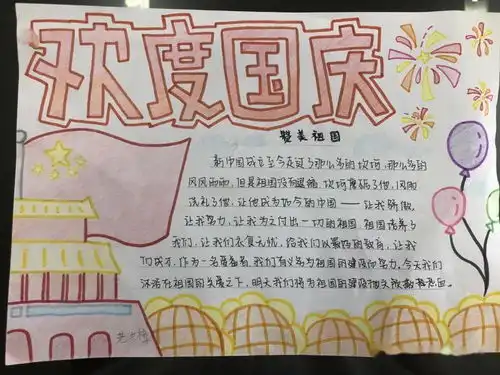 欢度国庆
赞美祖国
新中国成立至今走过了那么多的坎坷,那么多的
风风雨雨,但是祖国没有退缩,坎坷磨砺了他,风雨
洗礼了他,让他成为如今的中国——让我骄傲,
让我努力,让我为之付出一切的祖国,祖国培养了
我们,让我们衣食无忧,给我们以最好的教育,让我
们成才,作为一名青年,我们有义务为祖国的建设而努力,今天我们
沐浴在祖国的关爱之下,明天我们将为祖国的建设抛头颅洒热血。